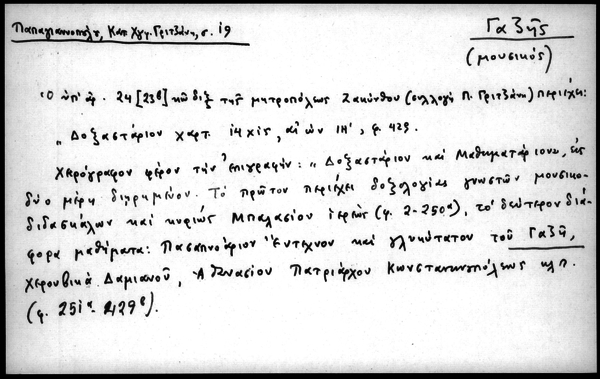 Παπαγιαννοπούλου, Κατ. Χγφ. Γριτζάνη, σ. 19
Γαζῆς
(μουσικός)
Ὁ ὑπ' ἀρ. 24 [23β] κῶδιξ τῆς μητροπόλεως Ζακύνθου (συλλογὴ Π. Γριτζάνη) περιέχει:
"Δοξαστάριον χαρτ. 14χ15, αἰών ΙΗ', φ. 429.
Χειρόγραφον φέρον τὴν ἐπιγραφήν: "Δοξαστάριον καὶ Μαθηματάριον", εἰς
δύο μέρη διῃρημένον. Τὸ πρῶτον περιέχει δοξολογίας γνωστῶν μουσικο-
διδασκάλων καὶ κυρίως Μπαλασίου ἱερέως (φ. 2-250α), τὸ δεύτερον διά-
φορα μαθήματα: Πασαπνοάριον Ἔντεχνον καὶ γλυκύτατον τοῦ Γαζῆ,
χερουβικὰ Δαμιανοῦ, Ἀθανασίου Πατριάρχου Κωνσταντινουπόλεως κλπ.
(φ. 251α-429β).